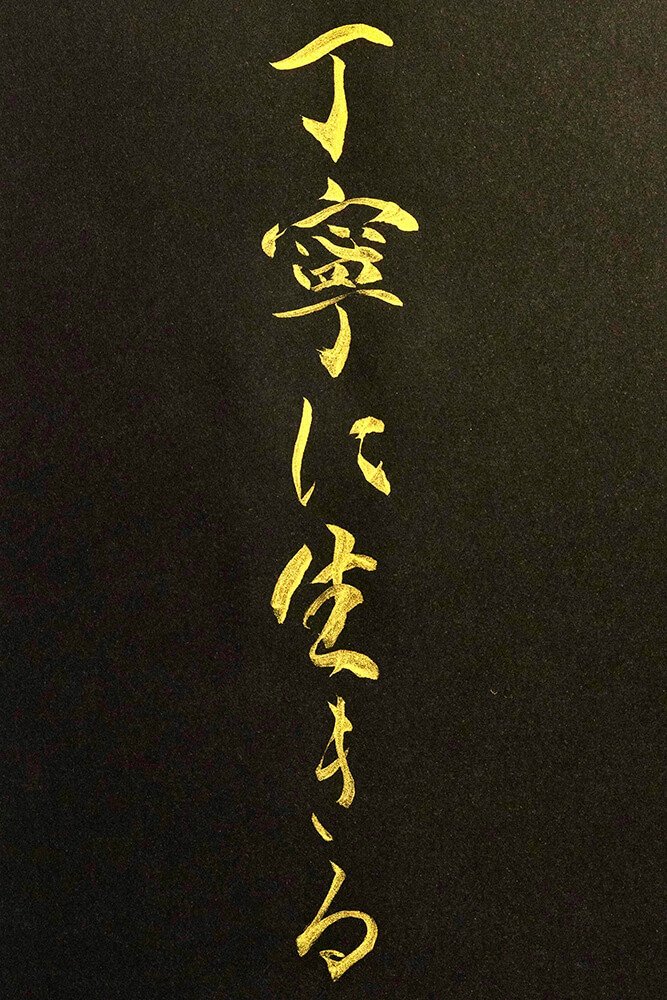 丁寧に生きる